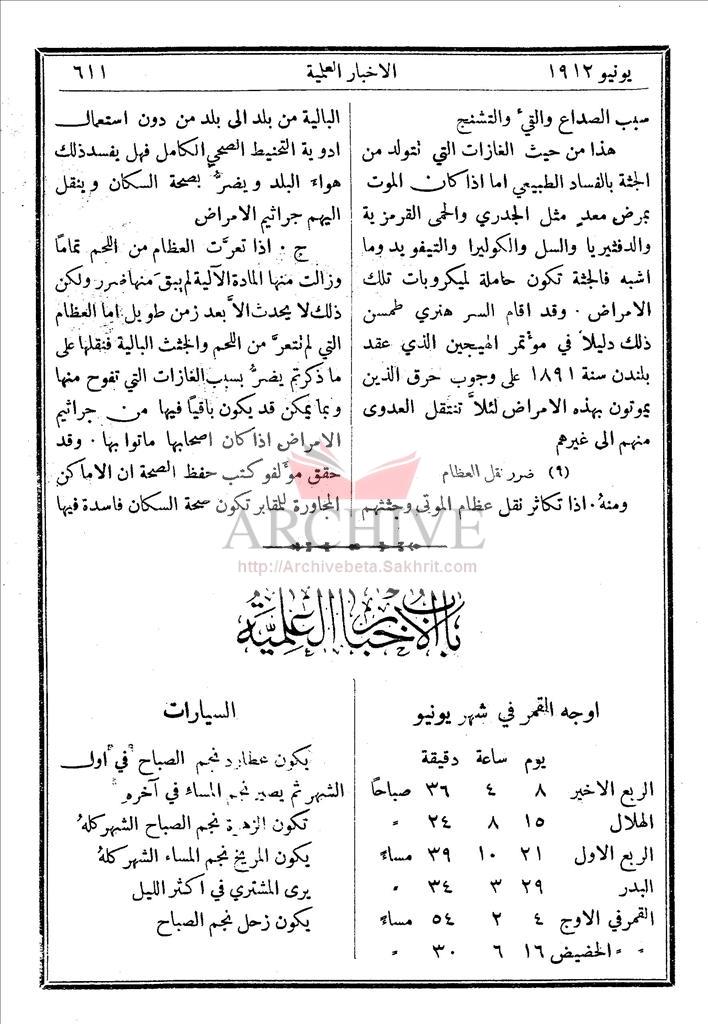 يونيو ١٩١٢
الاخبار العلمية
٦١١
سبب الصداع والقيء والتشنج
هذا من حيث الغازات التي تتولد من
الجثة بالفساد الطبيعي اما اذا كان الموت
بمرض معدٍ مثل الجدري والحمى القرمزية
والدفثيريا والسل والكوليرا والتيفويد وما
اشبه فالجثة تكون حاملة لميكروبات تلك
الامراض ٠ وقد اقام السر هنري طمسن
ذلك دليلاً في مؤتمر الهيجين الذي عقد
بلندن سنة ١٨٩١ على وجوب حرق الذين
يموتون بهذه الامراض لئلاَّ تنتقل العدوى
منهم الى غيرهم
(٩) ضرر نقل العظام
ومنهُ ٠ اذا تكاثر نقل عظام الموتى وجثثهم
البالية من بلد الى بلد من دون استعمال
ادوية التحنيط الصحي الكامل فهل يفسد ذلك
هواءَ البلد ويضرُّ بصحة السكان وينقل
اليهم جراثيم الامراض
ج ٠ اذا تعرَّت العظام من اللحم تماماً
وزالت منها المادة الآلية لم يبقَ منها ضرر ولكن
ذلك لا يحدث الاَّ بعد زمن طويل اما العظام
التي لم تتعرَّ من اللحم والجثث البالية فنقلها على
ما ذكرتم يضرُّ بسبب الغازات التي تفوح منها
وبما يمكن قد يكون باقياً فيها من جراثيم
الامراض اذا كان اصحابها ماتوا بها ٠ وقد
حقق مؤلفو كتب حفظ الصحة ان الاماكن
المجاورة للمقابر تكون صحة السكان فاسدة فيها
ARCHIVE
http://Archivebeta.Sakhrit.com
باب الاخبار العلمية
اوجه القمر في شهر يونيو
يوم ساعة دقيقة
الربع الاخير ٨ ٤ ٣٦ صباحاً
الهلال ١٥ ٨ ٢٤ "
الربع الاول ٢١ ١٠ ٣٩ مساءً
البدر ٢٩ ٣ ٣٤ "
القمر في الاوج ٤ ٢ ٥٤ مساءً
" " الحضيض ١٦ ٦ ٣٠ "
السيارات
يكون عطارد نجم الصباح في اول
الشهر ثم يصير نجم المساء في آخره
تكون الزهرة نجم الصباح الشهر كلهُ
يكون المريخ نجم المساء الشهر كلهُ
يرى المشتري في اكثر الليل
يكون زحل نجم الصباح